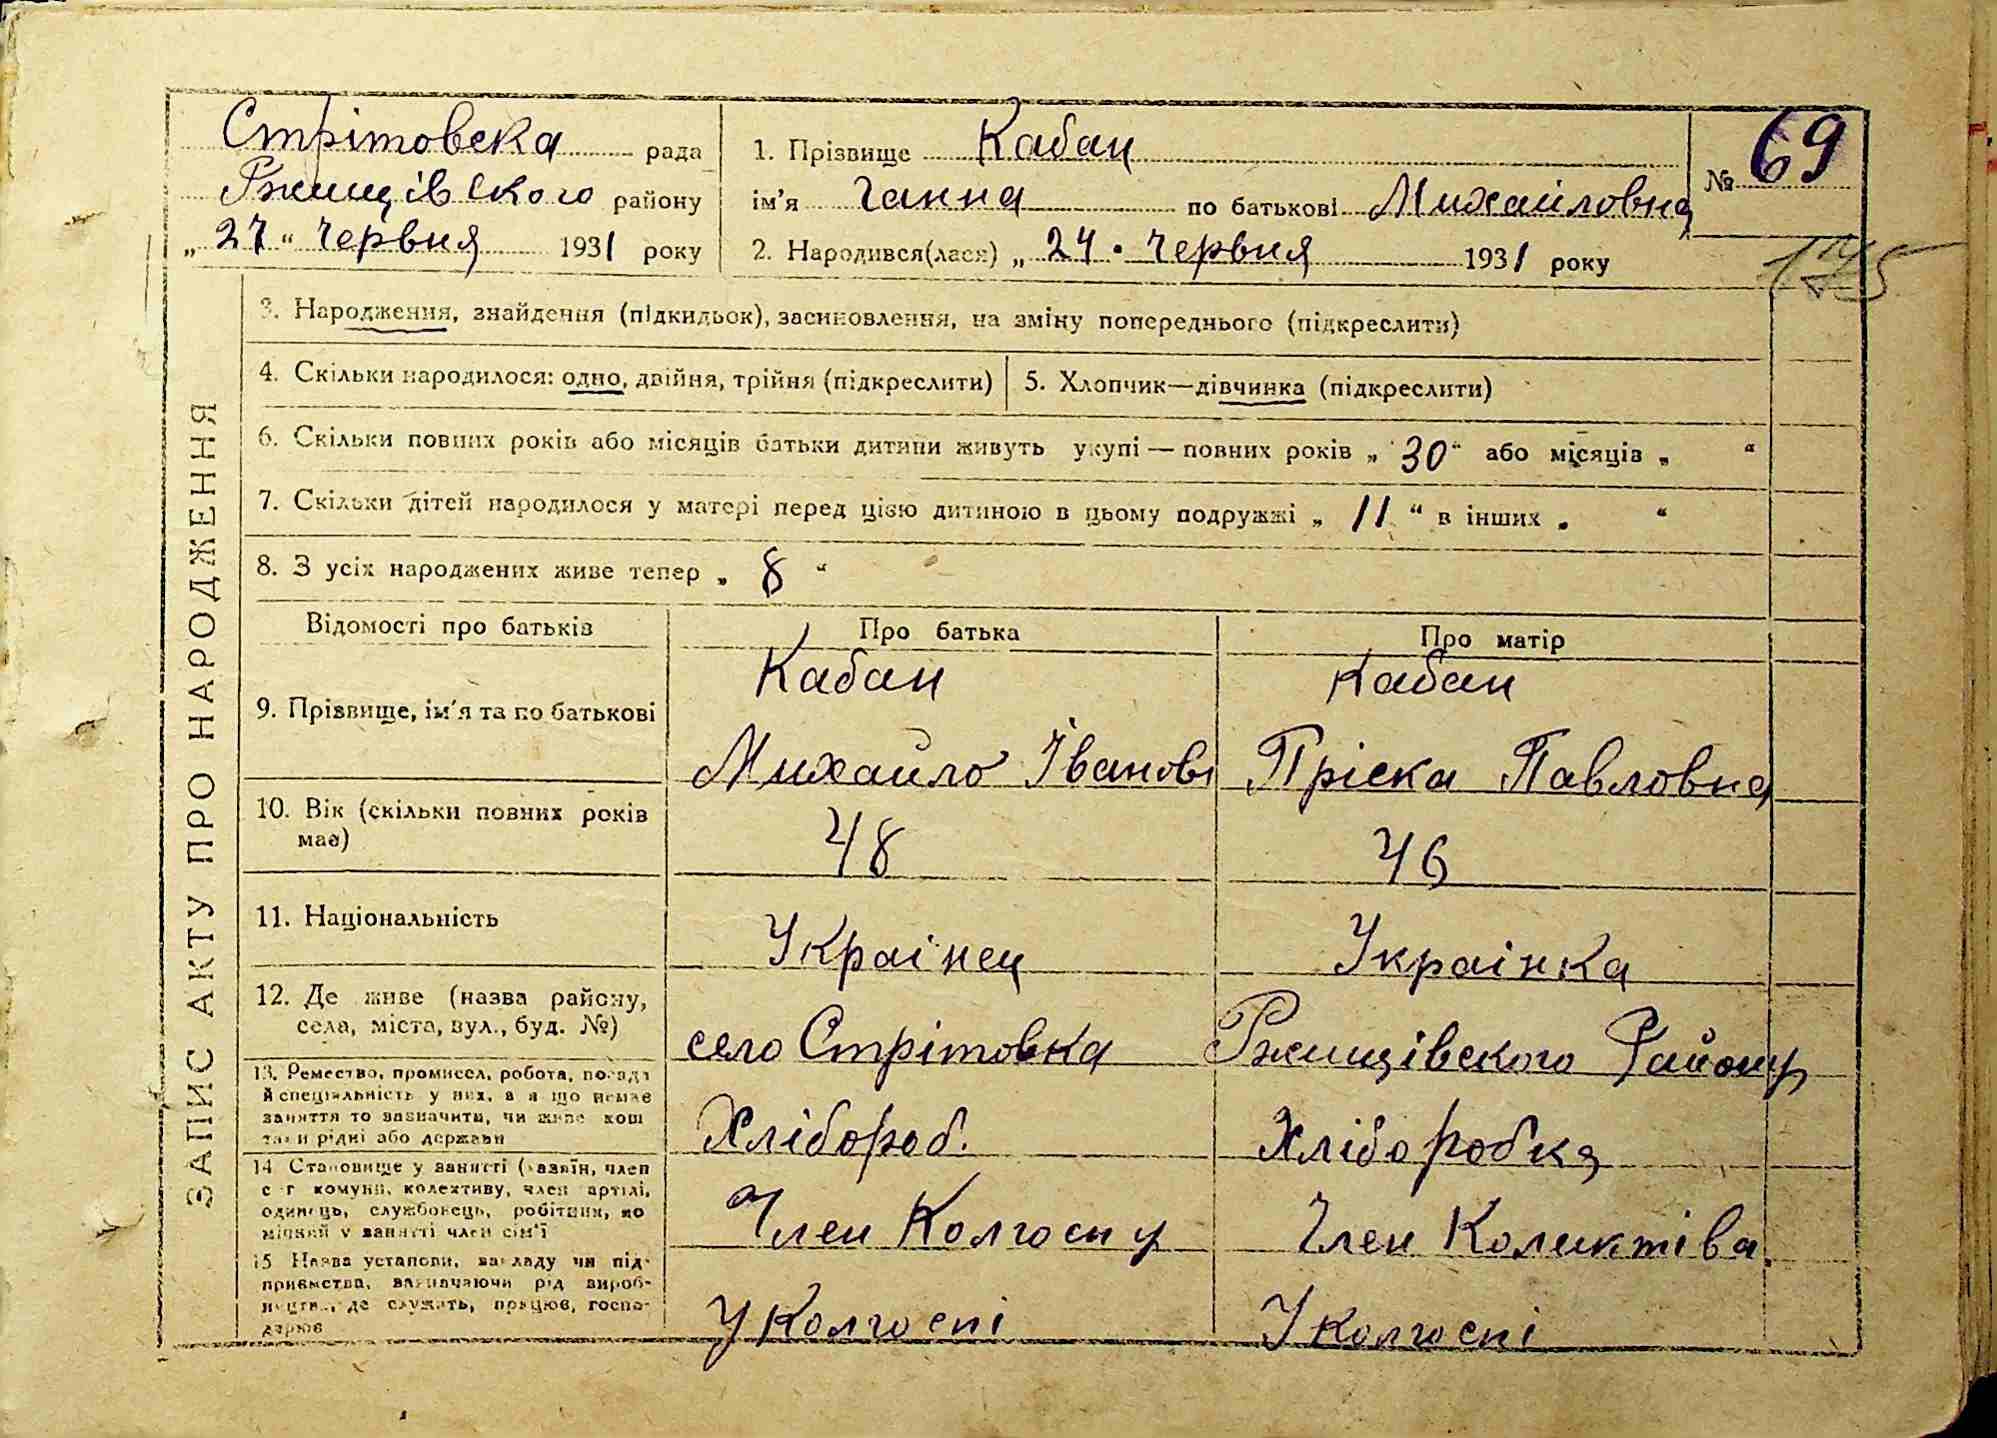 Стрітовска рада
Ржищівського району
„ 27 “ Червня 1931 року
1. Прізвище Кабан
ім'я Ганна по батькові Михайловна
2. Народився(лася) „ 24 • Червня 1931 року
№ 69
175
ЗАПИС АКТУ ПРО НАРОДЖЕННЯ
3. Народження, знайдення (підкидьок), засиновлення, на зміну попереднього (підкреслити)
4. Скільки народилося: одно, двійня, трійня (підкреслити)
5. Хлопчик—дівчинка (підкреслити)
6. Скільки повних років або місяців батьки дитини живуть укупі — повних років „ 30 “ або місяців „ “
7. Скільки дітей народилося у матері перед цією дитиною в цьому подружжі „ 11 “ в інших „ “
8. З усіх народжених живе тепер „ 8 “
Відомості про батьків
Про батька
Про матір
9. Прізвище, ім'я та по батькові
Кабан
Михайло Іванов
Кабан
Пріска Павловна
10. Вік (скільки повних років
має)
48
46
11. Національність
Українец
Українка
12. Де живе (назва району,
села, міста, вул., буд. №)
село Стрітовка Ржищівского Району
13. Ремество, промисел, робота, посада
й спеціяльність у них, а якщо немає
заняття то зазначити, чи живе кош
тами рідні або держави
Хлібороб.
Хліборобка
14. Становище у занятті (хазяїн, член
с г комуни, колективу, член артілі,
одинець, службовець, робітник, по
мічний у занятті член сім'ї
Член Колгоспу
Член Коликтіва
15 Назва установи, закладу чи під-
приємства, зазначаючи рід вироб-
ництва, де служить, працює, госпо-
дарює
У Колгоспі
У колгоспі